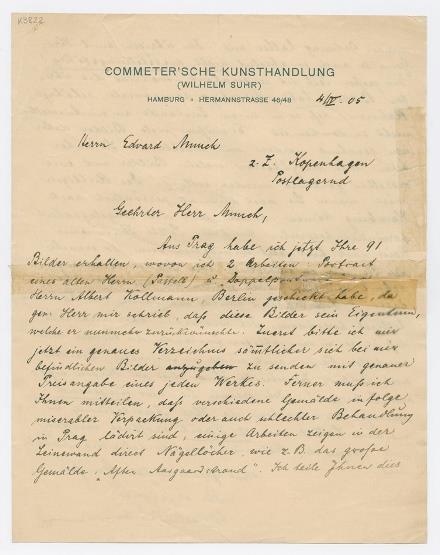 K3822
COMMETER'SCHE KUNSTHANDLUNG
(WILHELM SUHR)
HAMBURG • HERMANNSTRASSE 46/48
4/IV. 05
Herrn Edvard Munch
z. Z. Kopenhagen
Postlagernd
Geehrter Herr Munch,
Aus Prag habe ich jetzt Ihre 91
Bilder erhalten, wovon ich 2 Arbeiten: Portrait
eines alten Herrn (Pastell) u Doppelportrait
Herrn Albert Kollmann, Berlin geschickt habe, da
gen. Herr mir schrieb, daß diese Bilder sein Eigentum,
welche er nunmehr zurückwünschte. Zuerst bitte ich mir
jetzt ein genaues Verzeichnis sämtlicher sich bei mir
befindlichen Bilder anzugeben zu senden mit genauer
Preisangabe eines jeden Werkes. Ferner muß ich
Ihnen mitteilen, daß verschiedene Gemälde in folge
miserabler Verpackung oder auch schlechter Behandlung
in Prag lädirt sind, einige Arbeiten zeigen in der
Leinewand direct Nägellöcher, wie z.B. das große
Gemälde „Aften Aasgaardstrand". Ich teile Ihnen dies